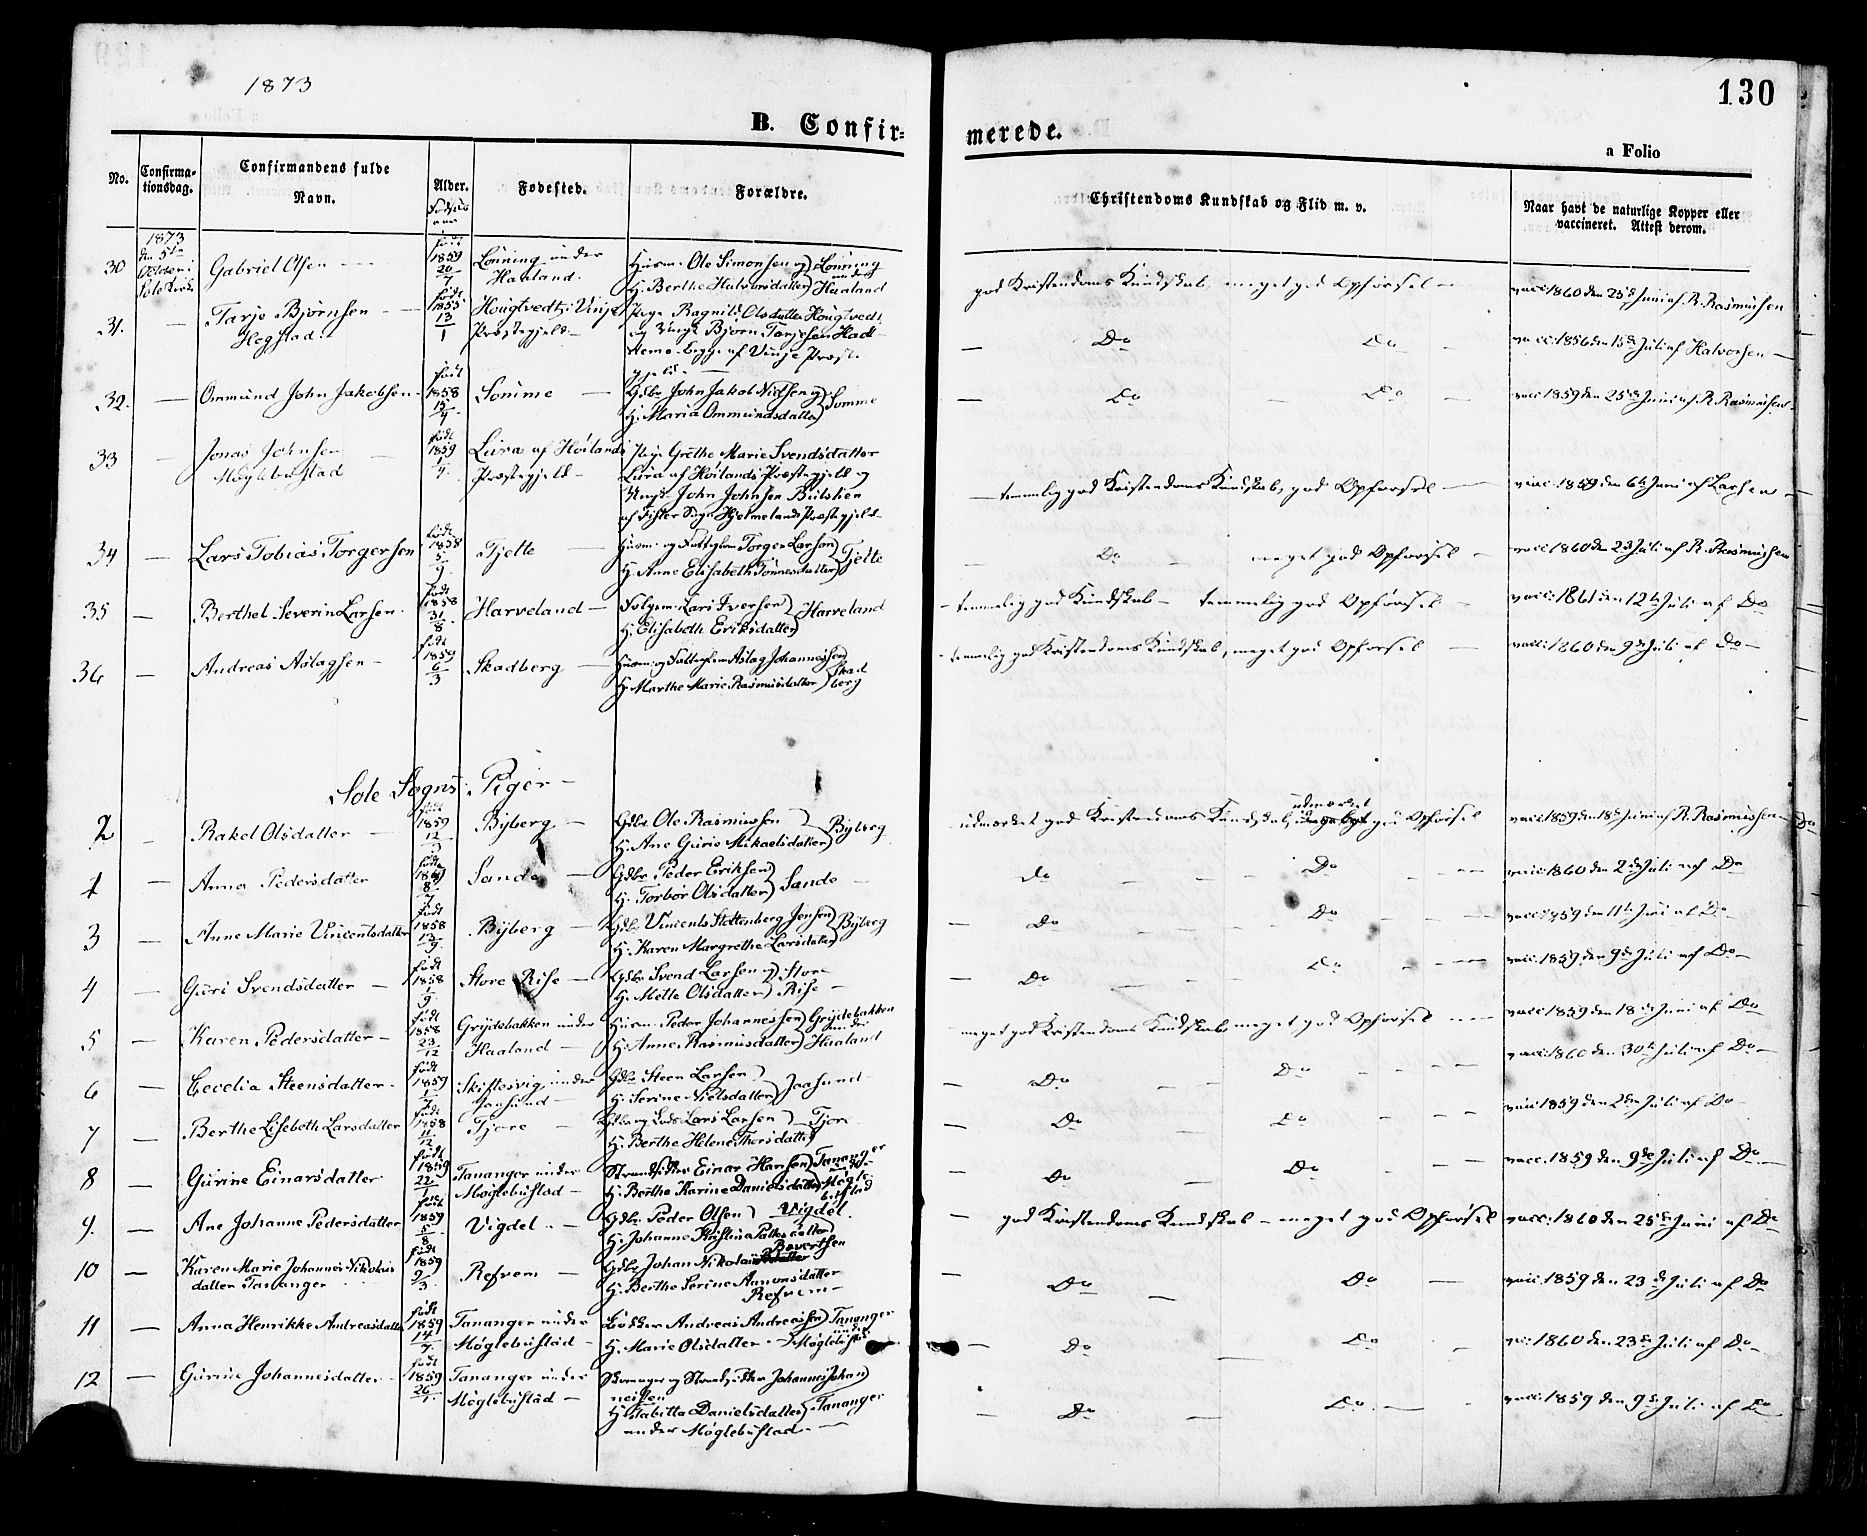 1873
130
B. Confir-
merede.
a Folio
No.
Confirma-
tionsdag.
Confirmandens fulde
Navn.
Alder.
Fødested.
Forældre.
Christendoms Kundskab og Flid m. v.
Naar havt de naturlige Kopper eller
vaccineret. Attest derom.
30
1873
den 5te
October i
Sole Kirke
Gabriel Olsen
født
1859
20
7
Lønning under
Haaland.
Husm. Ole Simonsen og Lønning
H. Berthe Halvorsdatter under Haaland
god Kristendoms Kundskab, meget god Opførsel
vacc. 1860 den 25de Juni af R. Rasmussen
31.
Tarje Bjørnsen
Hegstad.
født
1855
13
1
Hougtvedt i Vinje
Præstegjeld
Pige Ragnild Olsdatter Hougtvedt
og Ungk. Bjørn Tarjesen Hadt-
begge af Vinje Præst.
gjeld.
Do Do
vacc. 1856 den 15de Juli af Halvorsen
32.
Ommund John Jakobsen
født
1858
15
4
Sømme
Gdbr. John Jakob Nielsen og
H. Maria Ommundsdatter Sømme
Do Do
vacc. 1859 den 25de Juni af R. Rasmussen
33
Jonas Johnsen
Møglebustad
født
1859
1
4
Lura af Høilands
Præstegjeld
Pige Grethe Marie Svendsdatter
Lura af Høilands Præstegjeld og
Ungk. John Johnsen
af Fister Sogn Hjelmelands Præstegjeld
temmelig god Kristendoms Kundskab, god Opførsel
vacc. 1859 den 6te Juni af Larsen
34
Lars Tobias Torgersen
født
1858
5
9
Tjelte
Husm. og Fattiglem Torger Larsen
H. Anne Elisabeth Tønnesdatter Tjelte
Do meget god Opførsel
vacc. 1860 den 23 Juli af R. Rasmussen
35
Berthel Severin Larsen
født
1858
31
8
Harveland
Folgem. Lars Iversen
H. Elisabeth Eriksdatter Harveland
temmelig god Kundskab temmelig god Opførsel
vacc. 1861 den 12te Juli af Do
36
Andreas Aslagsen
født
1859
6
3
Skadberg
Husm. og Fattiglem Aslag Johannessen
H. Marthe Marie Rasmusdatter Skadberg
temmelig god Kristendoms Kundskab, meget god Opførsel
vacc. 1860 den 9de Juli af Do
Sole Sogns Piger
2
Rakel Olsdatter
født
1859
12
Byberg
Gdbr. Ole Rasmussen
H. Ane Gurie Mikaelsdatter Byberg
udmærket god Kristendoms Kundskab, udmærket god Opførsel
vacc. 1859 den 18de Juni af R. Rasmussen
1
Anna Pedersdatter
født
8
7
Sande
Gdbr. Peder Eriksen
H. Torbor Olsdatter Sande
do Do
vacc. 1860 den 2den Juli af Do
3
Anne Marie Vincentsdatter
født
1858
13
9
Byberg
Gdbr. Vincents Stottenberg Jensen
H. Karen Margrethe Larsdatter Byberg
Do Do
vacc. 1859 den 11te Juni af Do
4
Guri Svendsdatter
født
1858
1
9
Store Rise
Gdbr. Svend Larsen og
H. Mette Olsdatter Store Rise
Do Do
vacc. 1859 den 9de Juli af Do
5
Karen Pedersdatter
født
1858
23
12
Grydebakken under
Haaland
Husm. Peder Johannessen Grydebakken
H. Anne Rasmusdatter under Haaland
meget god Kristendoms Kundskab, meget god Opførsel
vacc. 1859 den 18de Juni af Do
6
Cecelia Steensdatter
født
1859
1
7
Skiftesvig under
Jaasund
Gdbr. Steen Larsen
H. Serine Nielsdatter Jaasund
Do Do
vacc. 1860 den 30te Juli af Do
7
Berthe Lisebeth Larsdatter
født
1858
11
12
Tjore
Gdbr. og Lods Lars Larsen Tjore
H. Berthe Helene Thorsdatter
Do Do
vacc. 1859 den 2den Juli af Do
8
Gurine Einarsdatter
født
1859
22
1
Tananger under
Møglebustad
Strandsidder Einar Hansen Tananger
H. Berthe Karine Danielsdatter und. Møglebustad
Do Do
vacc. 1859 den 9de Juli af Do
9.
Ane Johanne Pedersdatter
født
1859
5
8
Vigdel
Gdbr. Peder Olsen Vigdel
H. Johanne Kristina Pallesdatter
god Kristendoms Kundskab meget god Opførsel
vacc. 1860 den 25de Juni af Do
10
Karen Marie Johannes Nikolais
datter Tananger
født
1859
9
3
Refvem
Gdbr. Johan Nikolai Bovertsen
H. Berthe Serine Amonsdatter
Refvem
Do Do
vacc. 1859 den 23de Juli af Do
11
Anna Henrikke Andreasdatter
født
1859
14
7
Tananger under
Møglebustad
Bødker Andreas Andreassen Tananger
H. Marie Olsdatter under Møglebustad
Do Do
vacc. 1860 den 23de Juli af Do
12
Gurine Johannesdatter
født
1859
26
Tananger under
Møglebustad
Skomager og Strandsidder Johannes Johan
nessen
H. Tabitta Danielsdatter Tananger
under Møglebustad.
Do Do
vacc. 1859 den 9de Juli af Do